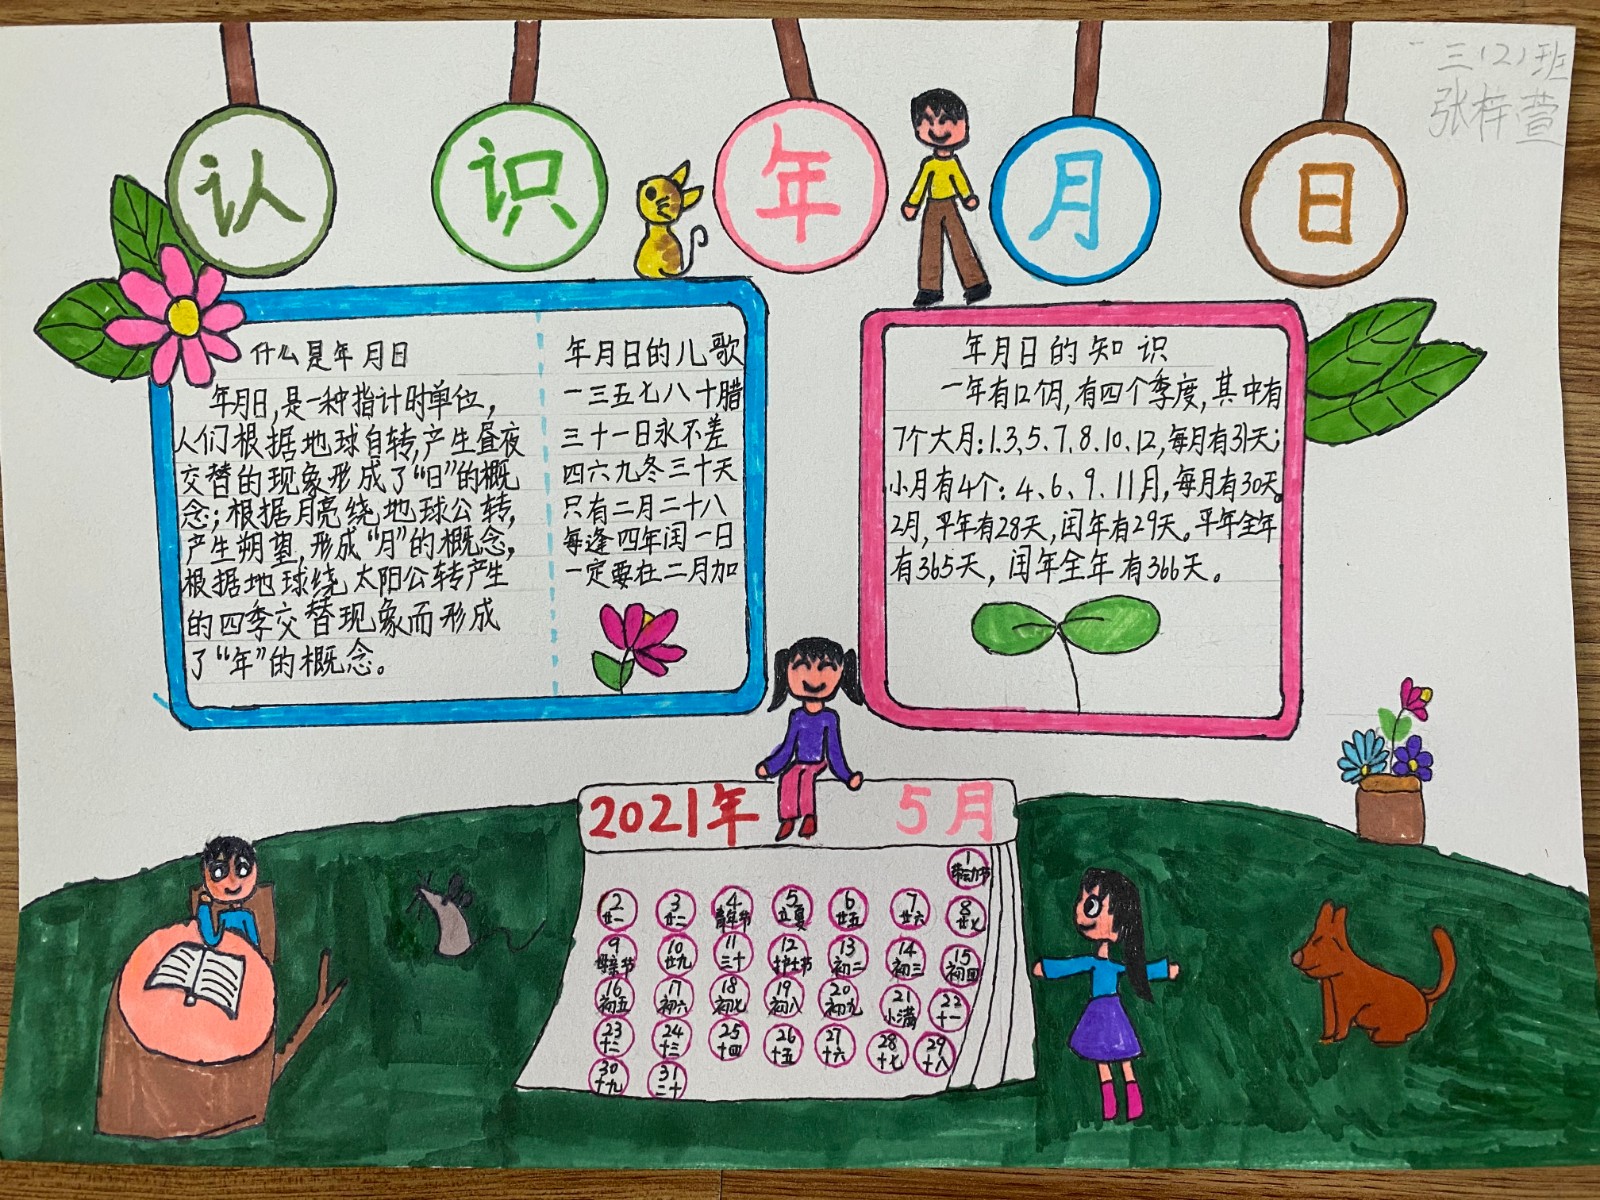 三(2)班
张梓萱
认识年月日
什么是年月日
年月日,是一种指计时单位,
人们根据地球自转,产生昼夜
交替的现象形成了“日”的概
念;根据月亮绕地球公转,
产生朔望,形成“月”的概念,
根据地球绕太阳公转产生
的四季交替现象而形成
了“年”的概念。
年月日的儿歌
一三五七八十腊
三十一日永不差
四六九冬三十天
只有二月二十八
每逢四年闰一日
一定要在二月加
年月日的知识
一年有12个月,有四个季度,其中有
7个大月:1.3、5、7、8、10、12,每月有31天;
小月有4个:4、6、9、11月,每月有30天。
2月,平年有28天,闰年有29天。平年全年
有365天,闰年全年有366天。
2021年 5月
1
劳动节
2 3 4 5 6 7 8
廿一 廿二 青年节 立夏 廿五 廿六 廿七
9 10 11 12 13 14 15
母亲节 廿九 三十 护士节 初二 初三 初四
16 17 18 19 20 21 22
初五 初六 初七 初八 初九 小满 十一
23 24 25 26 27 28 29
十二 十三 十四 十五 十六 十七 十八
30 31
十九 二十